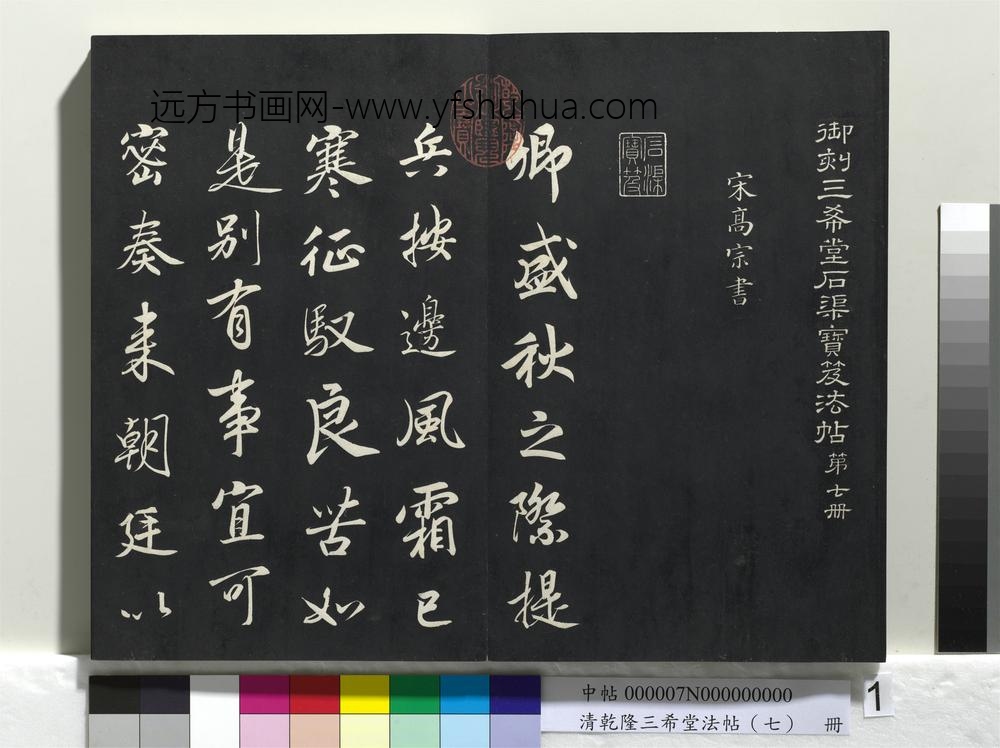 御刻三希堂石渠寶笈法帖第七册
宋高宗書
石渠寶笈
卿盛秋之際提
兵按邊風霜已
寒征馭良苦如
是別有事宜可
密奏来朝廷以
远方书画网-www.yfshuhua.com
中帖 000007N000000000
清乾隆三希堂法帖（七） 冊
1